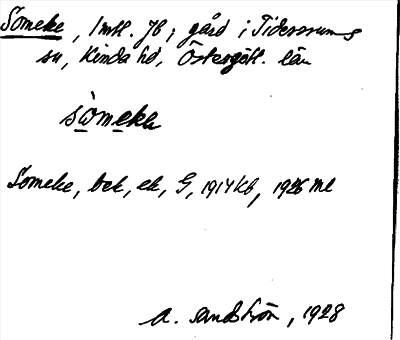 Someke, 1 mtl. Jb, gård i Tidersrums
sn, Kinda hd, Östergötl. län
sòmeka
Someke, bek, ek, G, 1914 Kb, 1926 ml
A. Sandström, 1928